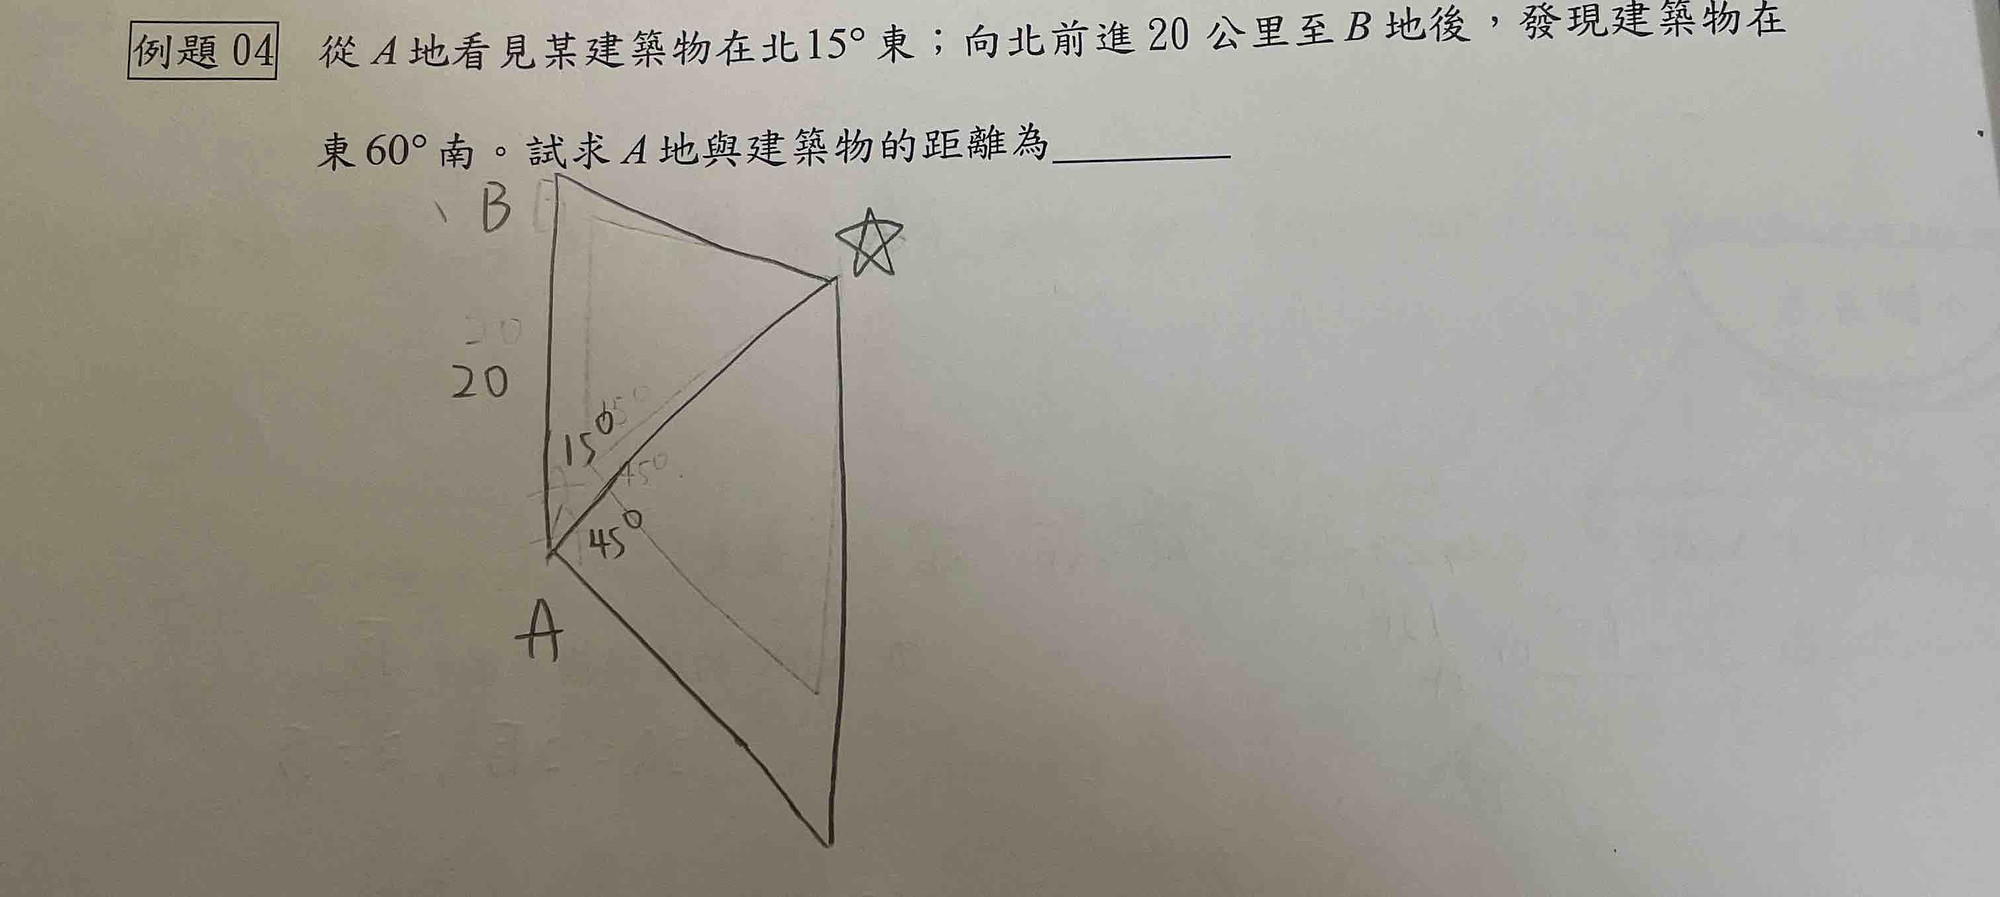 例題 04 從 A 地看見某建築物在北15° 東；向北前進 20 公里至 B 地後，發現建築物在
東 60° 南。試求 A 地與建築物的距離為________
B
20
20
15° 15°
45°
45°
A